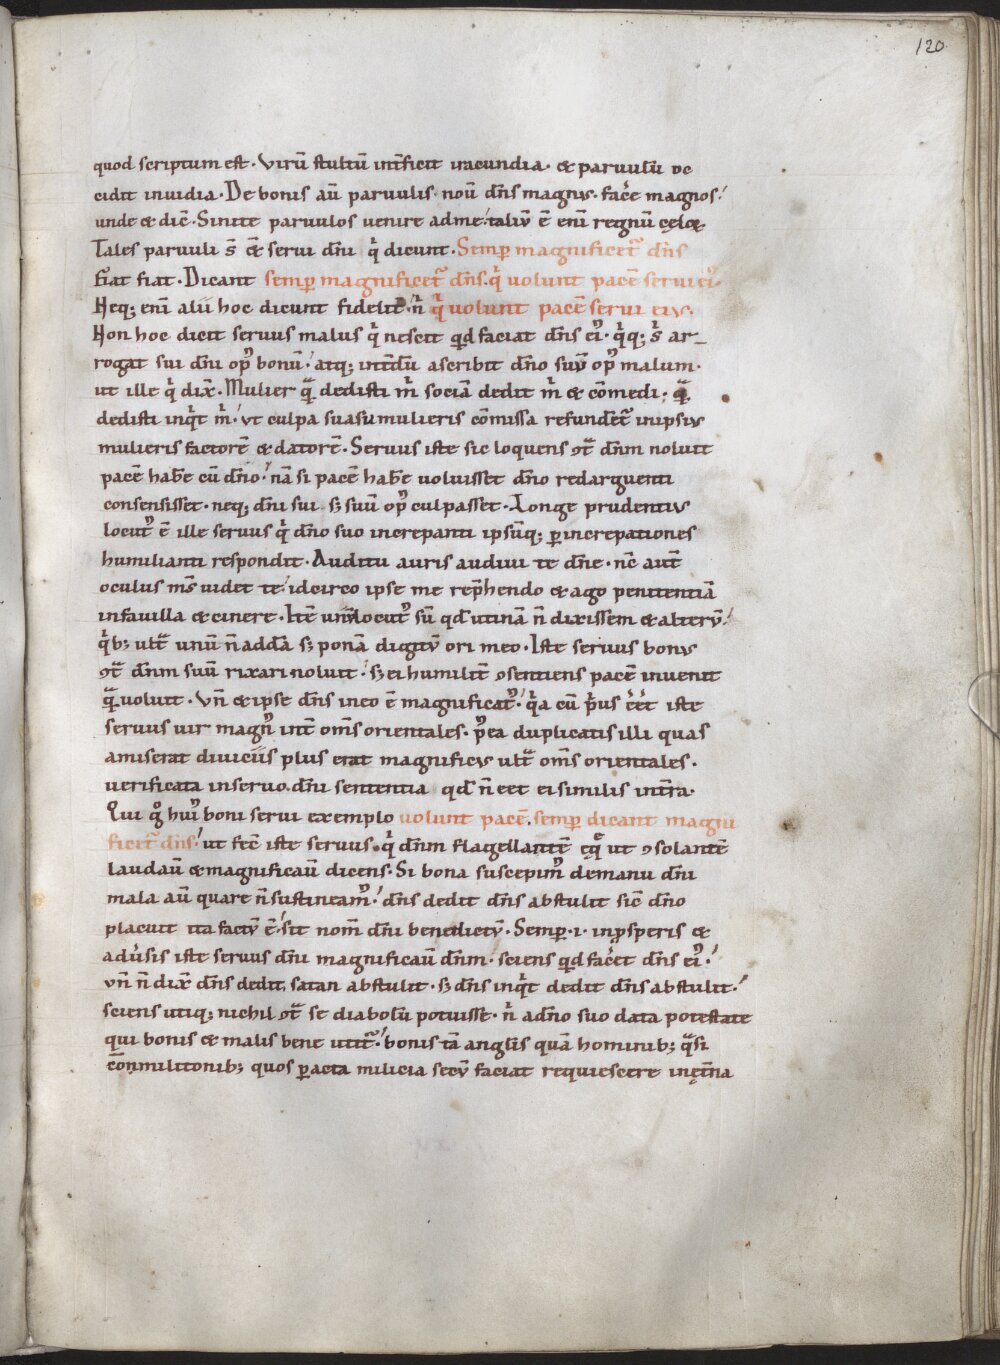 120
quod scriptum est · Virū stultū int̄ficit iracundia · & paruulū oc
cidit inuidia · De bonis aū paruulis · nouū dn̄s magnus · fac̄e magnos ·
unde & dic̄ · Sinite paruulos uenire ad me · taliū ē eni̅ regnū cęloꝝ
Tales paruuli s̄ & serui dn̄i q̄ dicunt · Semp magnificet᷑ dn̄s
fiat fiat · Dicant semp magnificet᷑ dn̄s · q̄ uolunt pacē serui ei᷒
Neq; eni̅ alii hoc dicunt fidelit᷑ · n̄ q̄ uolunt pacē serui eius ·
Non hoc dicit seruus malus q̄ nescit qd faciat dn̄s ei᷒ · q̄q; s̄ ar-
rogat sui dn̄i op᷒ bonū · atq; int̄dū ascribit dn̄o suū op᷒ malum ·
ut ille q̄ dix̄ · Mulier quā dedisti m̄ sociā dedit m̄ & cōmedi · quā
dedisti inq̄t m̄ · ut culpa suasu mulieris cōmissa refundet᷑ in ipsius
mulieris factorē & datorē · Seruus iste sic loquens ꝯt̄ dn̄m noluit
pacē hab̄e cū dn̄o · nā si pacē hab̄e uoluisset dn̄o redarguenti
consensisset · neq; dn̄i sui s; suū op᷒ culpasset · Longe prudentius
locut᷒ ē ille seruus q̄ dn̄o suo increpanti ipsūq; p increpationes
humilianti respondit · Auditu auris audiui te dn̄e · nc̄ aut̄
oculus ms̄ uidet te · idcirco ipse me rep̄hendo & ago penitentiā
in fauilla & cinere · Itē unū locut᷒ sū qd̄ utinā n̄ dixissem & alterū ·
q̄b; ult̄ unū n̄ addā s; ponā digitū ori meo · Iste seruus bonus
ꝯt̄ dn̄m suū rixari noluit · s; ei humilit̄ ꝯsentiens pacē inuenit
quā uoluit · Vn̄ & ipse dn̄s in eo ē magnificat᷒ · q̄a cū p̄us eēt iste
seruus uir magn᷒ int̄ om̄s orientales · p᷒ea duplicatis illi quas
amiserat diuiciis plus erat magnificus ult̄ om̄s orientales ·
uerificata in seruo dn̄i sententia qd̄ n̄ eēt ei similis in t̄ra ·
Qui g᷒ hui᷒ boni serui exemplo uolunt pacē · semp dicant magni
ficet᷑ dn̄s · ut fec̄ iste seruus · q̄ dn̄m flagellantē eq̄ ut ꝯsolantē
laudauī & magnificauī dicens · Si bona suscepim᷒ de manu dn̄i
mala aū quare n̄ sustineam᷒ · dn̄s dedit dn̄s abstulit sic̄ dn̄o
placuit ita factū ē · sit nom̄ dn̄i benedictū · Semp · i · in p̄speris &
adu̅sis iste seruus dn̄i magnificauī dn̄m · sciens qd fac̄et dn̄s ei᷒ ·
vn̄ n̄ dix̄ dn̄s dedit, satan abstulit · s; dn̄s inq̄t dedit dn̄s abstulit ·
sciens utiq; nichil ꝯt̄ se diabolū potuisse · n̄ a dn̄o suo data potestate
qui bonis & malis bene utit᷑ · bonis tā anglis̄ quā hominib; q̄si
cōmilitonib; quos pacta milicia secū faciat requiescere in ęt̄na